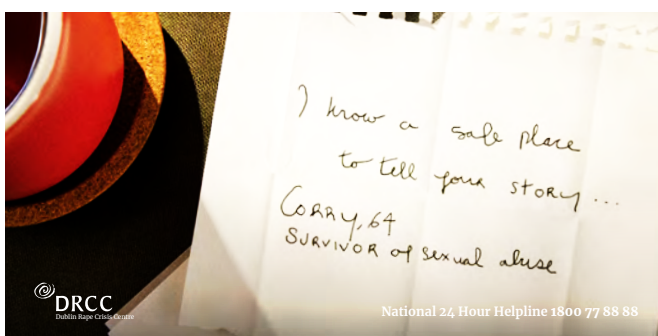 I know a safe place
to tell your story...
Corry, 64
Survivor of sexual abuse
DRCC
Dublin Rape Crisis Centre
National 24 Hour Helpline 1800 77 88 88